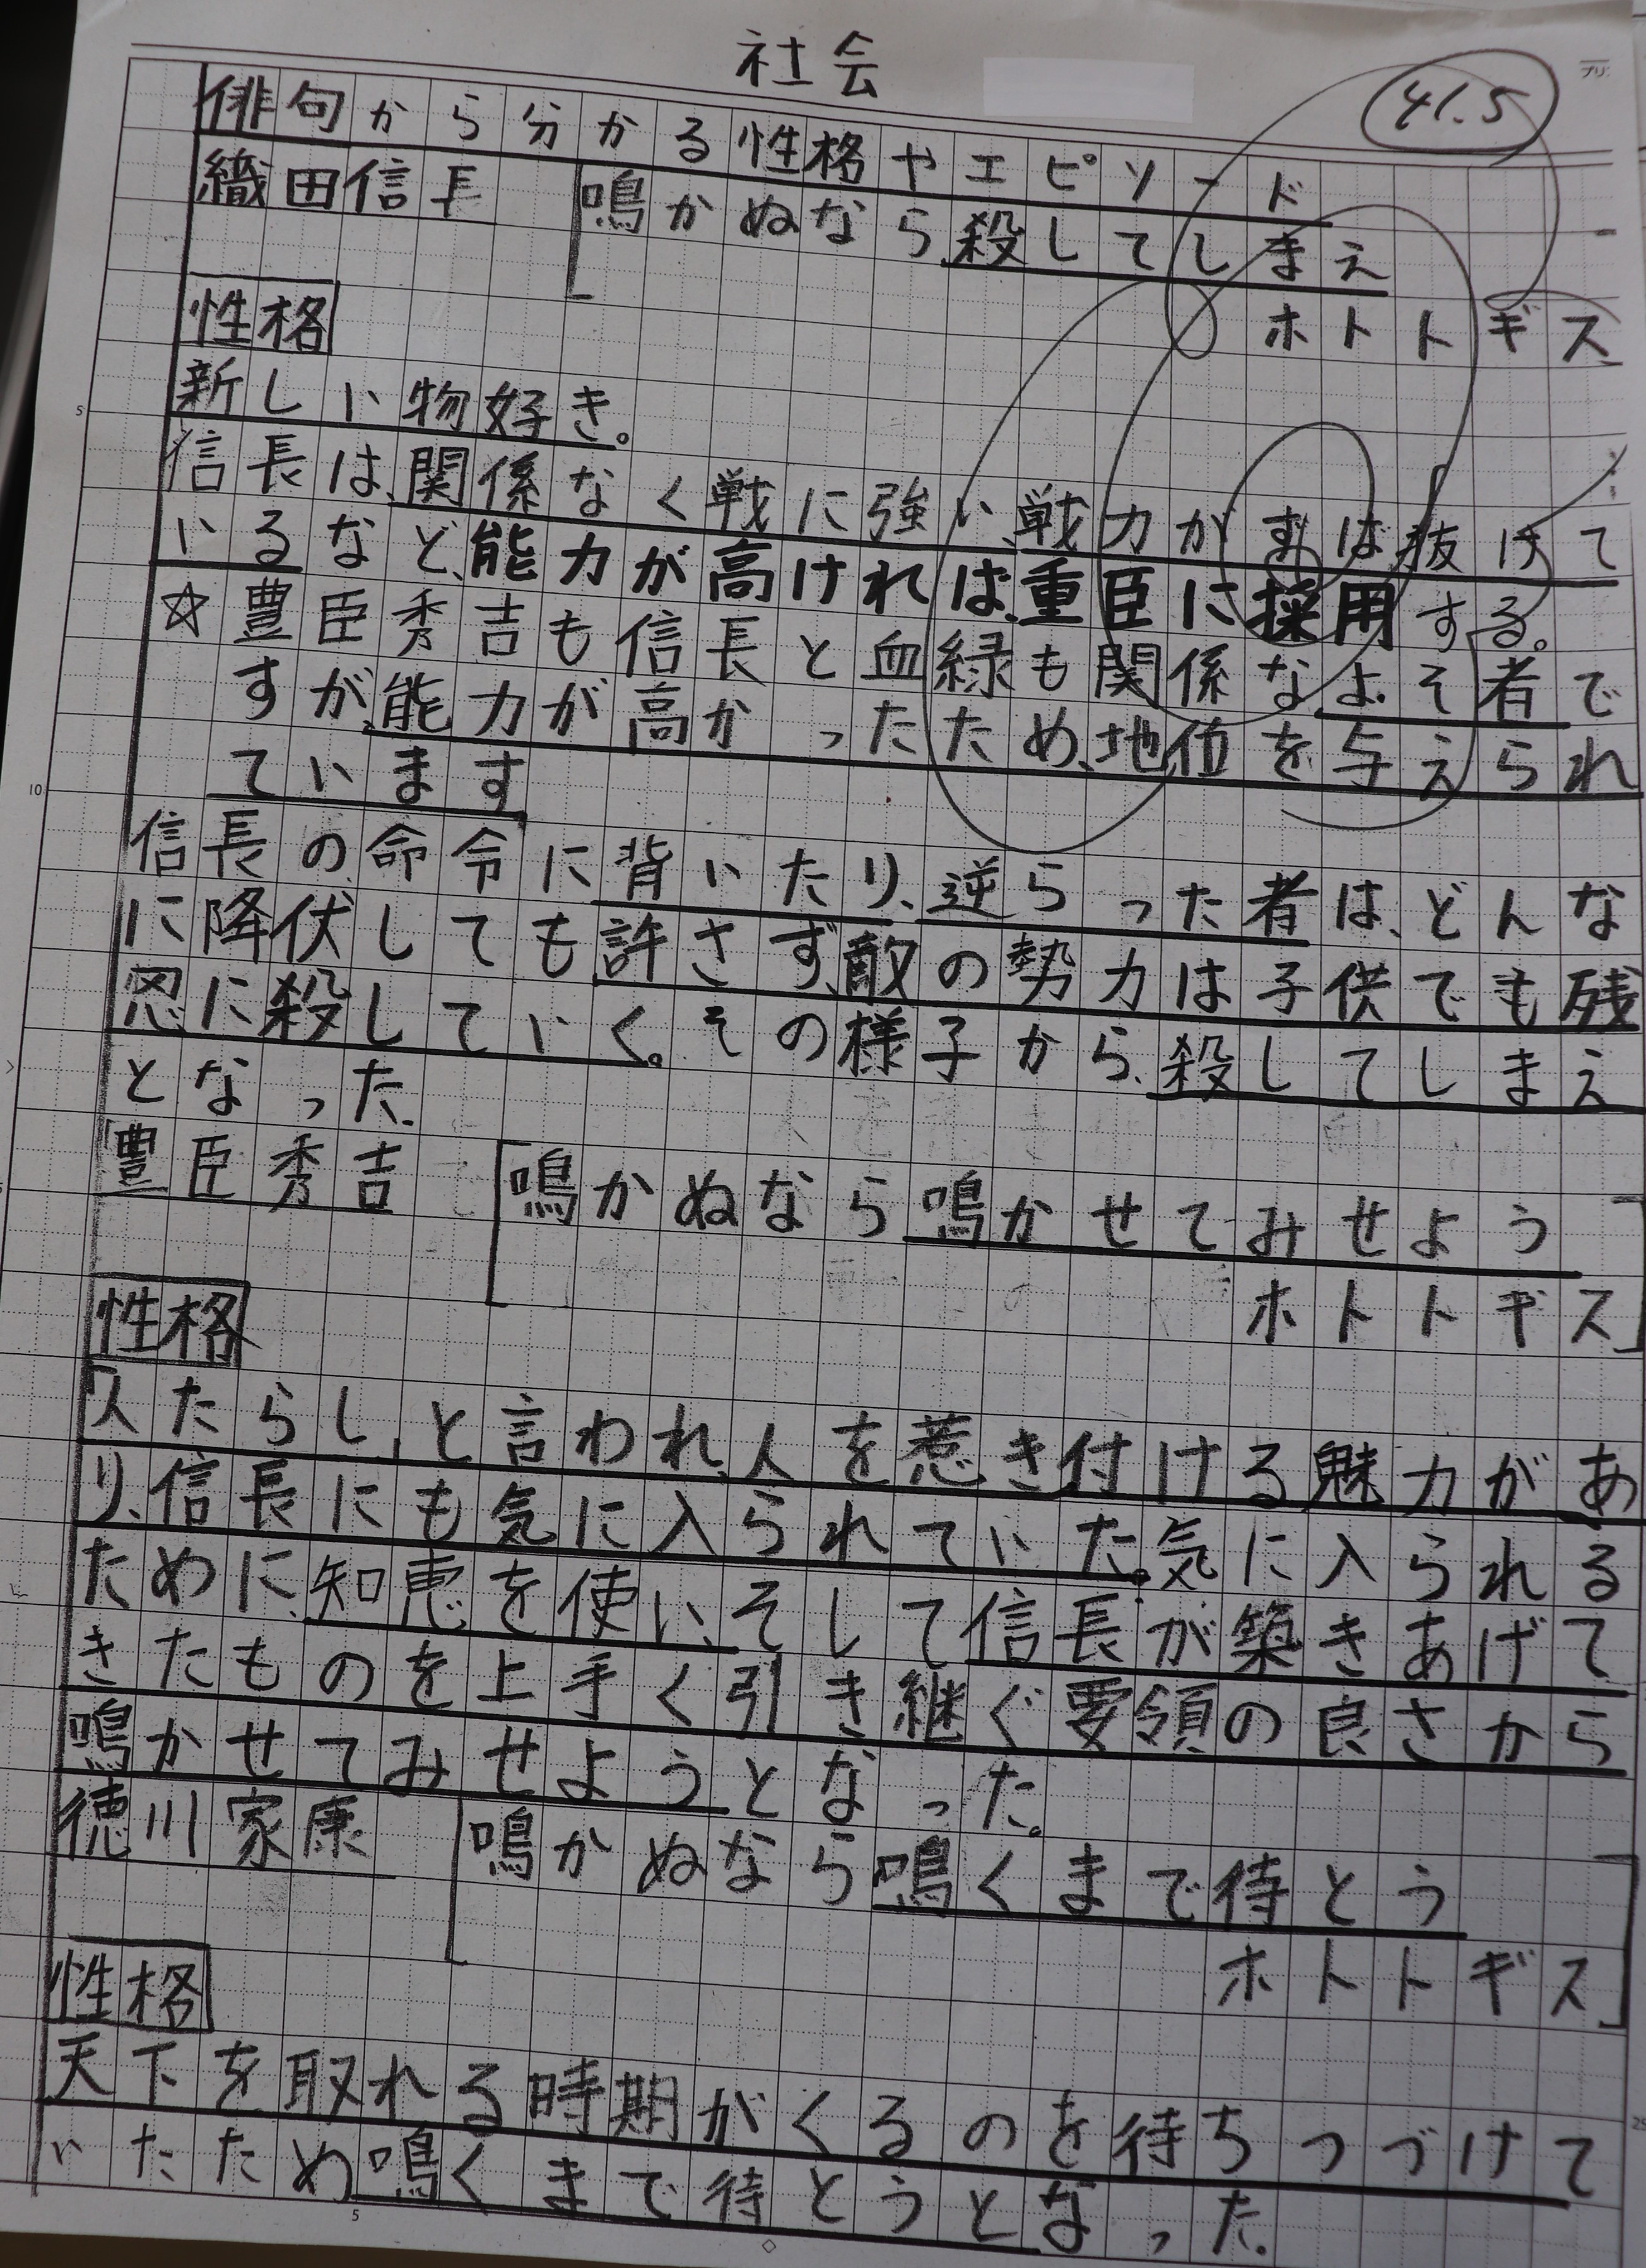 社会
41.5
俳句から分かる性格やエピソード
織田信長 「鳴かぬなら殺してしまえ
ホトトギス
性格
新しい物好き。
信長は、関係なく戦に強い、戦力がずば抜けて
いるなど、能力が高ければ、重臣に採用する。
☆豊臣秀吉も信長と血縁も関係なよそ者で
すが、能力が高かったため、地位を与えられ
ています
信長の命令に背いたり、逆らった者は、どんな
に降伏しても許さず、敵の勢力は子供でも残
忍に殺していく。その様子から、殺してしまえ
となった。
豊臣秀吉 「鳴かぬなら鳴かせてみせよう
ホトトギス」
性格
「人たらし」と言われ、人を惹き付ける魅力があ
り、信長にも気に入られていた。気に入られる
ために、知恵を使い、そして信長が築きあげて
きたものを上手く引き継ぐ要領の良さから
鳴かせてみせようとなった。
徳川家康 「鳴かぬなら鳴くまで待とう
ホトトギス」
性格
天下を取れる時期がくるのを待ちつづけて
いたため鳴くまで待とうとなった。